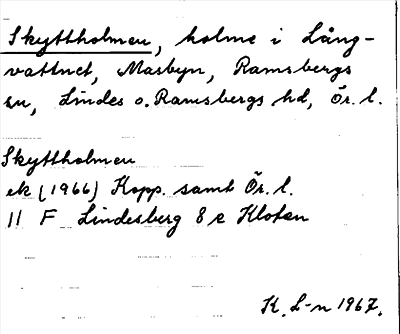 Skyttholmen, holme i Lång-
vattnet, Masbyn, Ramsbergs
sn, Lindes o. Ramsbergs hd, Ör. l.
Skyttholmen
ek (1966) Kopp. samt Ör. l.
11 F Lindesberg 8 e Kloten
K. L-n 1967.